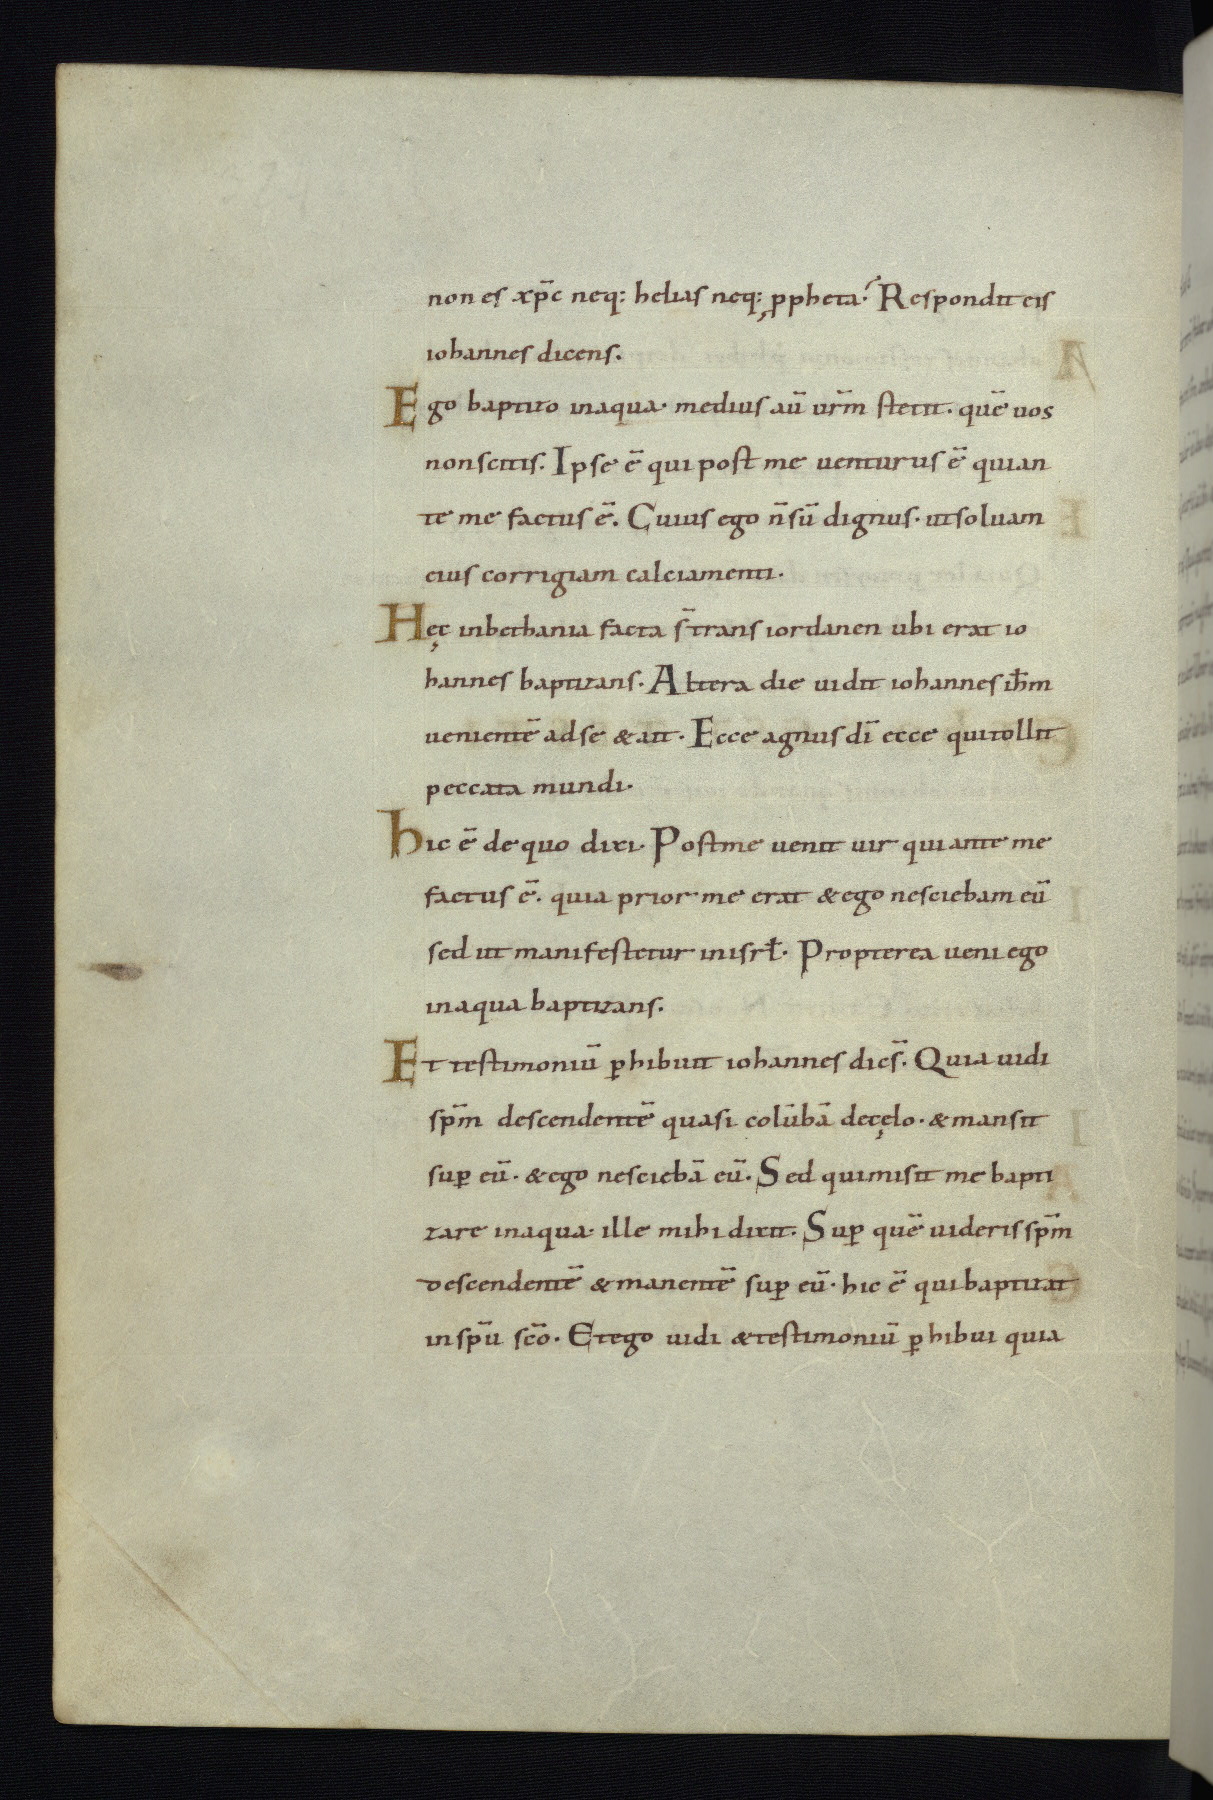 non es xp̄c neq: helias neq: ppheta. Respondit eis
iohannes dicens.
Ego baptizo in aqua. medius aū ur̄m stetit. quē uos
non scitis. Ipse ē qui post me uenturus ē qui an
te me factus ē. Cuius ego n̄ sū dignus. ut soluam
eius corrigiam calciamenti.
Hęc in bethania facta s̄ trans iordanen ubi erat io
hannes baptizans. Altera die uidit iohannes ih̄m
uenientē ad se & ait. Ecce agnus dī ecce qui tollit
peccata mundi.
hic ē de quo dixi. Post me uenit uir qui ante me
factus ē. quia prior me erat & ego nesciebam eū
sed ut manifestetur in isrł. Propterea ueni ego
in aqua baptizans.
Et testimoniū ꝑhibuit iohannes dice̅s. Quia uidi
sp̄m descendentē quasi colūbā de cęlo. & mansit
suꝑ eū. & ego nesciebā eū. Sed qui misit me bapti
zare in aqua. ille mihi dixit. Suꝑ quē uideris sp̄m
descendentē & manentē suꝑ eū. hic ē qui baptizat
in sp̄u sc̄o. Et ego uidi & testimoniū ꝑhibui quia